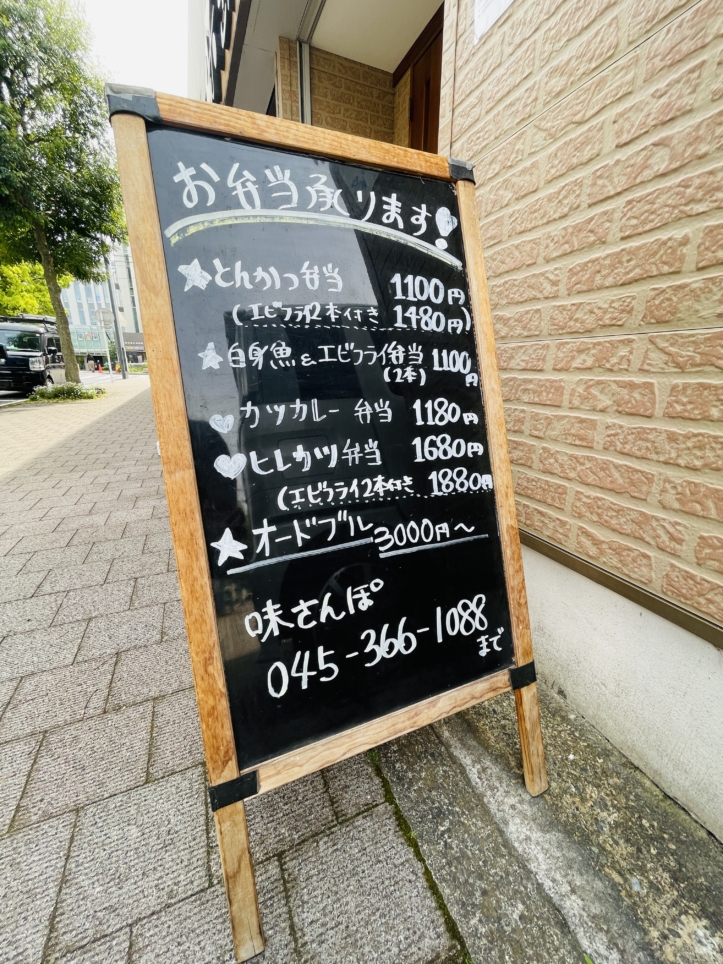 お弁当承ります!
★とんかつ弁当 1100円
(エビフライ2本付き 1480円)
★白身魚&エビフライ弁当 1100円
(2本)
♥カツカレー弁当 1180円
♥ヒレカツ弁当 1680円
(エビフライ2本付き 1880円
★オードブル 3000円～
味さんぽ
045-366-1088
まで